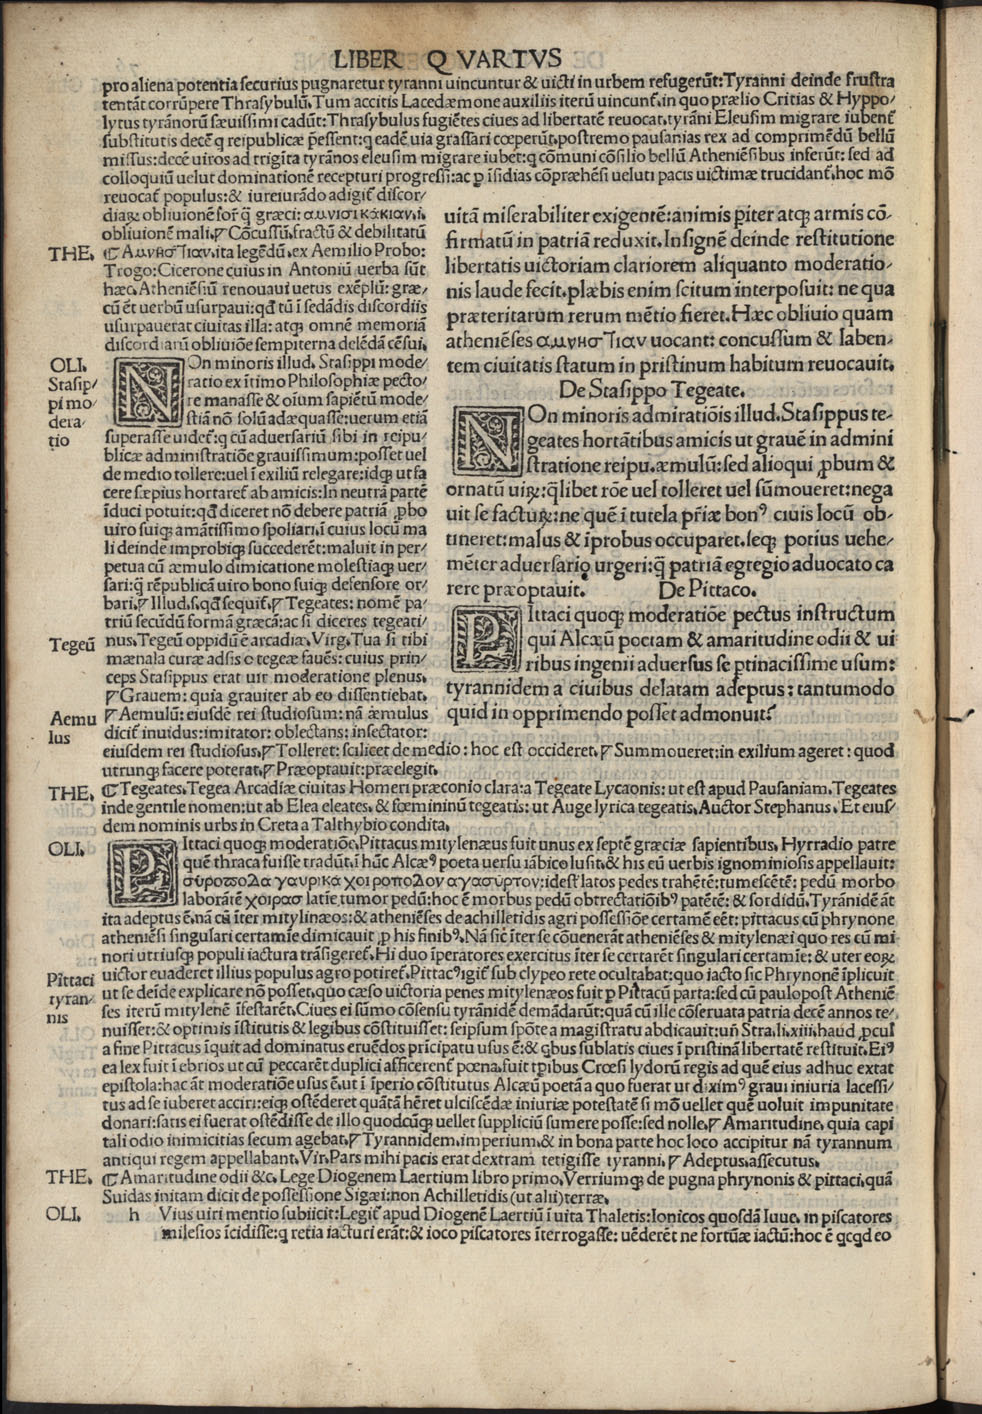 LIBER QVARTVS
pro aliena potentia securius pugnaretur tyranni uincuntur & uicti in urbem refugerũt: Tyranni deinde frustra
tentãt corrũpere Thrasybulũ. Tum accitis Lacedæmone auxiliis iterũ uincunt̃. in quo prælio Critias & Hyppo/
lytus tyrãnorũ sæuissimi cadũt: Thrasybulus fugiẽtes ciues ad libertatẽ reuocat. tyrãni Eleusim migrare iubent̃
substitutis decẽ q reipublicæ p̃essent: q eadẽ uia grassari cœperũt. postremo pausanias rex ad comprimẽdũ bellũ
missus: decẽ uiros ad trigĩta tyrãnos eleusim migrare iubet: q cõmuni cõsilio bellũ Atheniẽsibus inferũt: sed ad
colloquiũ uelut dominationẽ recepturi progressi: ac ꝑ ĩsidias cõpræhẽsi ueluti pacis uictimæ trucidant̃. hoc mõ
reuocat̃ populus: & iureiurãdo adigit̃ discor/
diaꝝ obliuionẽ for̃. q̃ græci: αμνισικάκιαν. i.
obliuionẽ mali. ꝓ Cõcussũ. fractũ & debilitatũ
THE. ¶ Αμνησίαν. ita legẽdũ. ex Aemilio Probo:
Trogo: Cicerone cuius in Antoniũ uerba sũt
hæc. Atheniẽsiũ renouaui uetus exẽplũ: græ/
cũ ẽt uerbũ usurpaui: qđ tũ ĩ sedãdis discordiis
usurpauerat ciuitas illa: atqꝫ omnẽ memoriã
discordiarũ obliuiõe sempiterna delẽdã cẽsui.
OLI. NOn minoris illud. Stasippi mode/
Stasip/ ratio ex ĩtimo Philosophiæ pecto/
pi mo/ re manasse & oĩum sapiẽtũ mode/
dera/ stiã nõ solũ adæquasse: uerum etiã
tio superasse uidet̃: q cũ aduersariũ sibi in reipu/
blicæ administratiõe grauissimum: posset uel
de medio tollere: uel ĩ exiliũ relegare: idqꝫ ut fa
cere sæpius hortaret̃ ab amicis: In neutrã partẽ
ĩduci potuit: qđ diceret nõ debere patriã ꝓbo
uiro suiqꝫ amãtissimo spoliari. ĩ cuius locũ ma
li deinde improbiqꝫ succederẽt: maluit in per/
petua cũ æmulo dimicatione molestiaqꝫ uer/
sari: q̃ rẽpublicã uiro bono suiqꝫ defensore or/
bari. ꝓ Illud. s. qđ sequit̃. ꝓ Tegeates: nomẽ pa/
triũ secũdũ formã græcã: ac si diceres tegeati/
Tegeũ nus. Tegeũ oppidũ ẽ arcadiæ. Virg. Tua si tibi
mænala curæ adsis o tegeæ fauẽs: cuius prin/
ceps Stasippus erat uir moderatione plenus.
ꝓ Grauem: quia grauiter ab eo dissentiebat.
Aemu ꝓ Aemulũ: eiusdẽ rei studiosum: nã æmulus
lus dicit̃ inuidus: imitator: oblectans: insectator:
uitã miserabiliter exigentẽ: animis p̱iter atqꝫ armis cõ/
firmatũ in patriã reduxit. Insignẽ deinde restitutione
libertatis uictoriam clariorem aliquanto moderatio/
nis laude fecit. plæbis enim scitum interposuit: ne qua
præteritarum rerum mẽtio fieret. Hæc obliuio quam
atheniẽses αμνησίαν uocant: concussum & laben/
tem ciuitatis statum in pristinum habitum reuocauit.
De Stasippo Tegeate.
NOn minoris admiratiõis illud. Stasippus te/
geates hortãtibus amicis ut grauẽ in admini
stratione reipu. æmulũ: sed alioqui ꝓbum &
ornatũ uiꝝ: q̃libet rõe uel tolleret uel sũmoueret: nega
uit se factuꝝ: ne quẽ ĩ tutela pr̃iæ bonꝰ ciuis locũ ob/
tineret: malus & ĩprobus occuparet. seqꝫ potius uehe/
mẽter aduersario urgeri: q̃ patriã egregio aduocato ca
rere præoptauit. De Pittaco.
PIttaci quoqꝫ moderatiõe pectus instructum
qui Alcæũ poetam & amaritudine odii & ui
ribus ingenii aduersus se ꝑtinacissime usum:
tyrannidem a ciuibus delatam adeptus: tantumodo
quid in opprimendo posset admonuit:
eiusdem rei studiosus. ꝓ Tolleret: scilicet de medio: hoc est occideret. ꝓ Summoueret: in exilium ageret: quod
utrunqꝫ facere poterat. ꝓ Præoptauit: præelegit.
THE. ¶ Tegeates. Tegea Arcadiæ ciuitas Homeri præconio clara: a Tegeate Lycaonis: ut est apud Pausaniam. Tegeates
inde gentile nomen: ut ab Elea eleates. & fœmininũ tegeatis: ut Auge lyrica tegeatis. Auctor Stephanus. Et eius/
dem nominis urbs in Creta a Talthybio condita.
OLI. PIttaci quoqꝫ moderatiõe. Pittacus mitylenæus fuit unus ex septẽ græciæ sapientibus. Hyrradio patre
quẽ thraca fuisse tradũt. ĩ hũc Alcæꝰ poeta uersu iãbico lusit. & his eũ uerbis ignominiosis appellauit:
σύροποδα γαυρικα χοιροπολον αγασύρτον: idest latos pedes trahẽtẽ: tumescẽtẽ: pedũ morbo
laborãtẽ χοιρασ latie. tumor pedũ: hoc ẽ morbus pedũ obtrectatiõibꝰ patẽtẽ: & sordidũ. Tyrãnidẽ ãt
ita adeptus ẽ. nã cũ ĩter mitylinæos: & atheniẽses de achilletidis agri possessiõe certamẽ eẽt: pittacus cũ phrynone
atheniẽsi singulari certamĩe dimicauit ꝓ his finibꝰ. Nã sic ĩter se cõuenerãt atheniẽses & mitylenæi quo res cũ mi
nori utriusqꝫ populi iactura trãsigeret̃. Hi duo ĩperatores exercitus ĩter se certarẽt singulari certamĩe: & uter eoꝝ
Pittaci uictor euaderet illius populus agro potiret̃. Pittacꝰ igit̃ sub clypeo rete ocultabat: quo iacto sic Phrynonẽ ĩplicuit
tyran/ ut se deĩde explicare nõ posset. quo cæso uictoria penes mitylenæos fuit ꝑ Pittacũ parta: sed cũ paulopost Atheniẽ
nis ses iterũ mitylenẽ ĩfestarẽt. Ciues ei sũmo cõsensu tyrãnidẽ demãdarũt: quã cũ ille cõseruata patria decẽ annos te/
nuisset: & optimis ĩstitutis & legibus cõstituisset: seipsum spõte a magistratu abdicauit: uñ Stra. li. xiii. haud ꝓcul
a fine Pittacus ĩquit ad dominatus eruẽdos prĩcipatu usus ẽ: & qbus sublatis ciues ĩ pristinã libertatẽ restituit. Eiꝰ
ea lex fuit ĩ ebrios ut cũ peccarẽt duplici afficerent̃ pœna. fuit tp̃ibus Crœsi lydorũ regis ad quẽ eius adhuc extat
epistola: hac ãt moderatiõe usus ẽ. ut ĩ ĩperio cõstitutus Alcæũ poetã a quo fuerat ut diximꝰ graui iniuria lacessi/
tus ad se iuberet acciri: eiqꝫ ostẽderet quãtã hẽret ulciscẽdæ iniuriæ potestatẽ si mõ uellet quẽ uoluit impunitate
donari: satis ei fuerat ostẽdisse de illo quodcũqꝫ uellet suppliciũ sumere posse: sed nolle. ꝓ Amaritudine. quia capi
tali odio inimicitias secum agebat. ꝓ Tyrannidem. imperium. & in bona parte hoc loco accipitur nã tyrannum
antiqui regem appellabant. Vir. Pars mihi pacis erat dextram tetigisse tyranni. ꝓ Adeptus. assecutus.
THE. ¶ Amaritudine odii &c. Lege Diogenem Laertium libro primo. Verriumqꝫ de pugna phrynonis & pittaci. quã
Suidas initam dicit de possessione Sigæi: non Achilletidis (ut alii) terræ.
OLI. h Vius uiri mentio subiicit: Legit̃ apud Diogenẽ Laertiũ ĩ uita Thaletis: Ionicos quosdã Iuue. in piscatores
milesios ĩcidisse: q retia iacturi erãt: & ioco piscatores ĩterrogasse: uẽderẽt ne fortũæ iactũ: hoc ẽ qcqd eo